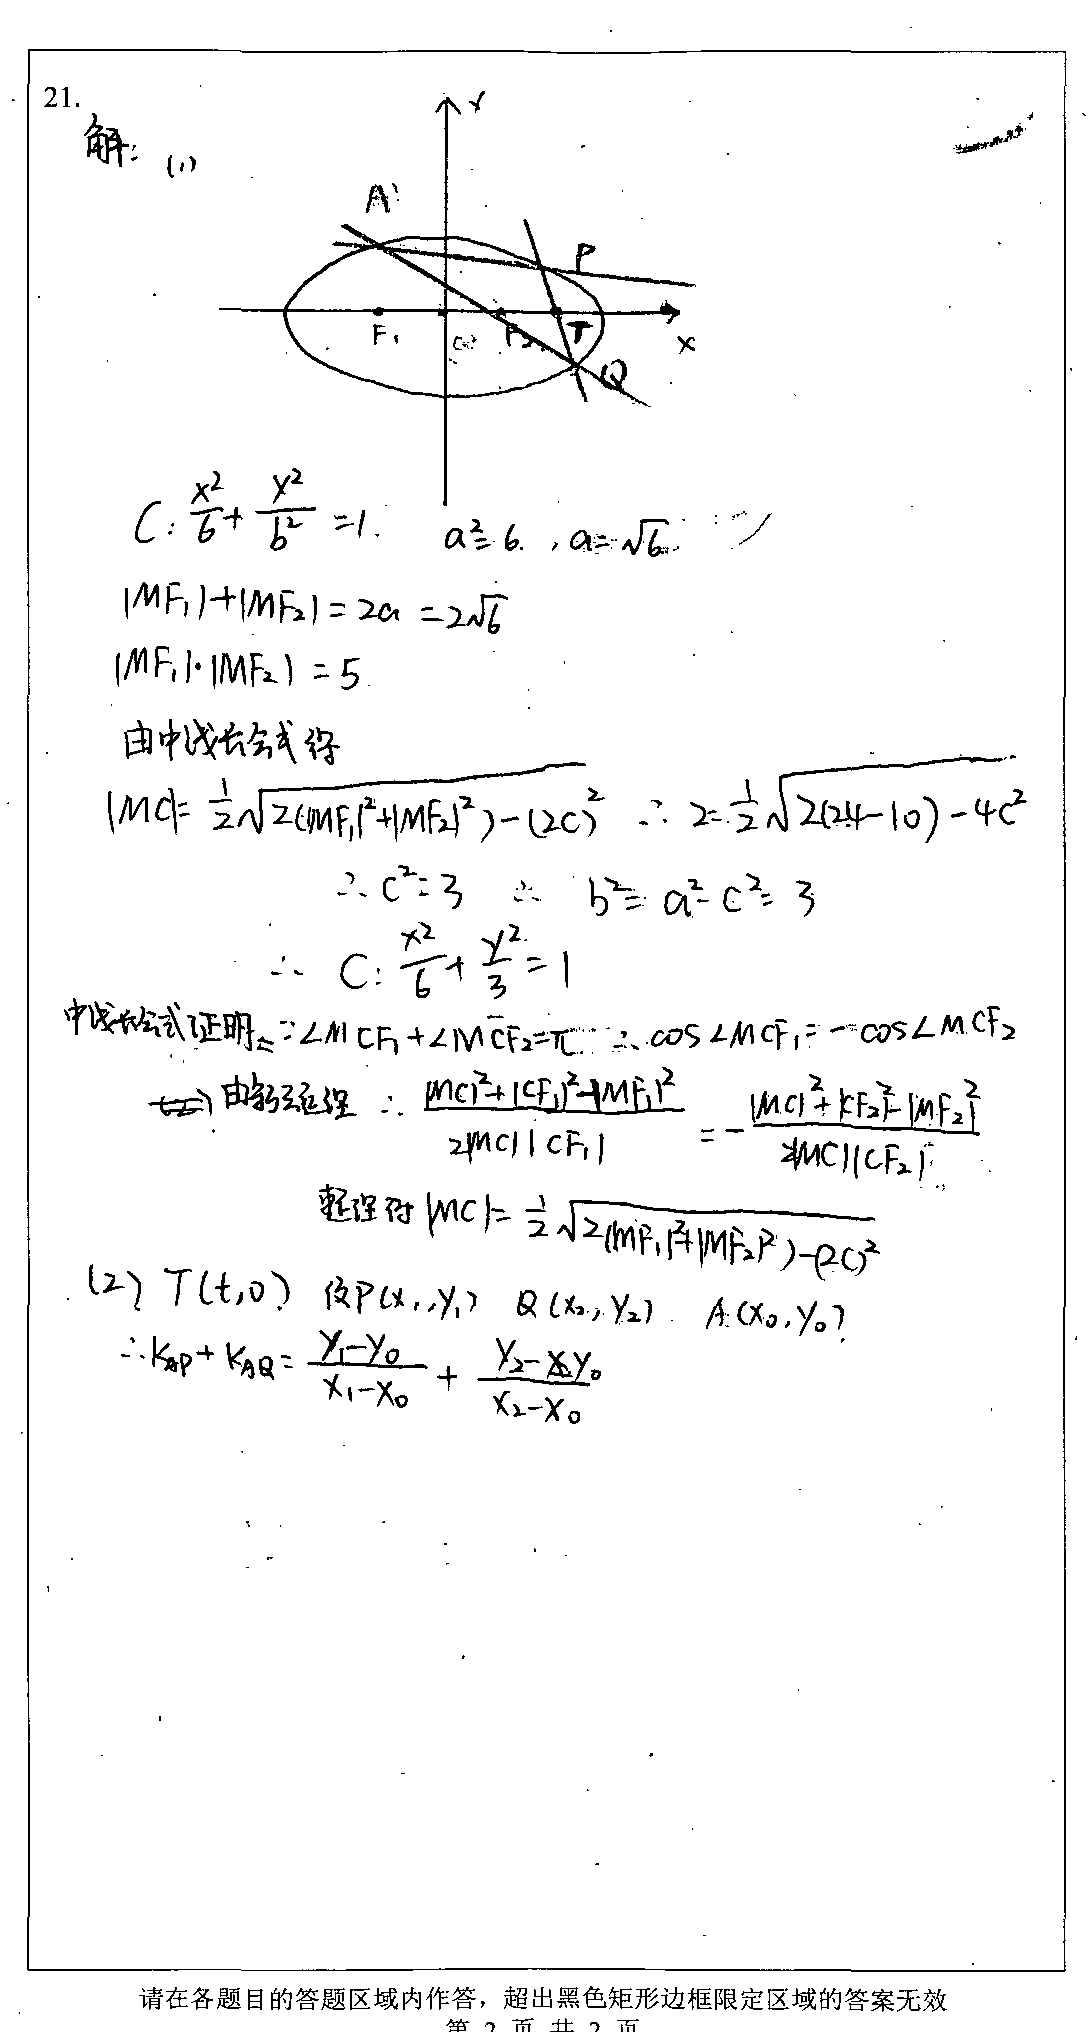 21.
解: (1)
y
A
P
F₁ F₂ T x
Q
C: x²/6 + y²/b² = 1. a²=6, a=√6
|MF₁|+|MF₂|=2a=2√6
|MF₁|·|MF₂|=5
由中线长公式得
|MC|=1/2√(2(|MF₁|²+|MF₂|²)-(2C)²) ∴ 2=1/2√(2(24-10)-4C²)
∴ C²=3 ∴ b²=a²-C²=3
∴ C: x²/6 + y²/3 = 1
中线长公式证明: ∵∠MCF₁+∠MCF₂=π ∴ cos∠MCF₁=-cos∠MCF₂
由余弦定理 ∴ (|MC|²+|CF₁|²-|MF₁|²)/(2|MC||CF₁|) = -(|MC|²+|CF₂|²-|MF₂|²)/(2|MC||CF₂|)
整理得 |MC|=1/2√(2(|MF₁|²+|MF₂|²)-(2C)²)
(2) T(t,0) 设P(x₁,y₁) Q(x₂,y₂) A(x₀,y₀)
∴k_AP+k_AQ=(y₁-y₀)/(x₁-x₀)+(y₂-y₀)/(x₂-x₀)
请在各题目的答题区域内作答，超出黑色矩形边框限定区域的答案无效
第 2 页 共 2 页